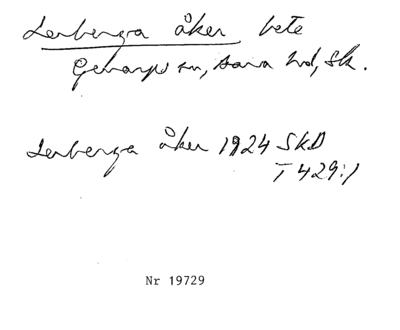 Lerberga åker bete
Genarps sn, Bara hd, Sk.
Lerberga åker 1924 SKD
T 429:1
Nr 19729